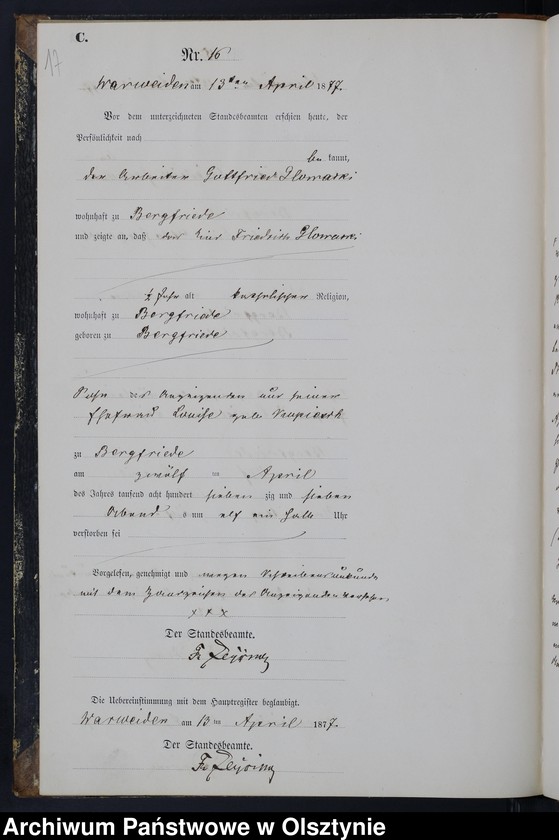 C.
17
Nr. 16
Warweiden am 13ten April 1877.
Vor dem unterzeichneten Standesbeamten erschien heute, der
Persönlichkeit nach
be kannt,
der Arbeiter Gottfried
wohnhaft zu Bergfriede
und zeigte an, daß das Kind Friedrich
½ Jahr alt katholischer Religion,
wohnhaft zu Bergfriede
geboren zu Bergfriede
Sohn des Anzeigenden und seiner
Ehefrau Louise geb.
zu Bergfriede
am zwölf ten April
des Jahres tausend acht hundert sieben zig und sieben
Abends um elf ein halb Uhr
verstorben sei
Vorgelesen, genehmigt und wegen Schreibensunkunde
mit dem Handzeichen des Anzeigenden versehen
x x x
Der Standesbeamte.
Die Uebereinstimmung mit dem Hauptregister beglaubigt.
Warweiden am 13ten April 1877.
Der Standesbeamte.
Archiwum Państwowe w Olsztynie